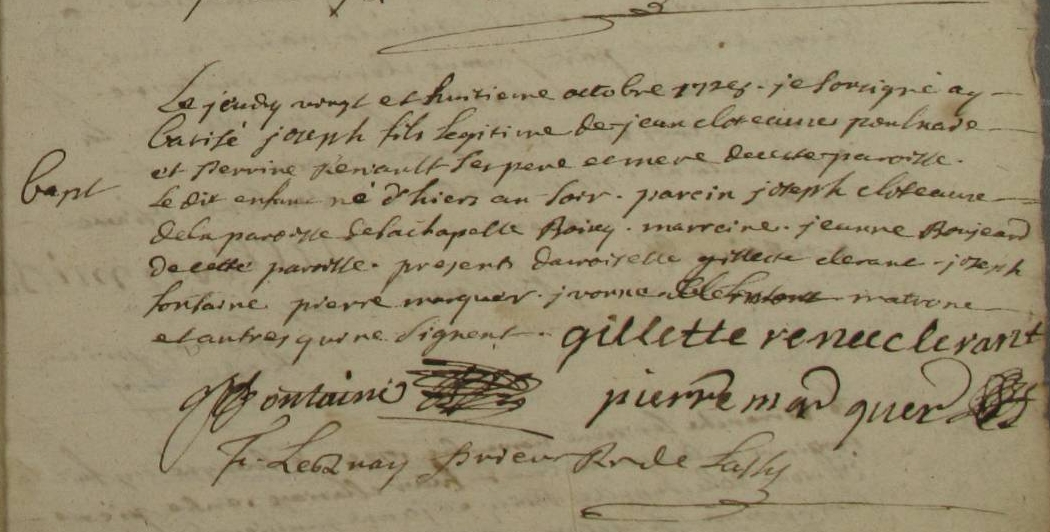 Le jeudy vingt et huitieme octobre 172 je sousigné ay
batisé joseph fils legitime de jean cloteaux
et Perrine Renault ses pere et mere de cette paroisse.
Bapt
le dit enfant né d'hiers au soir. parein joseph cloteaux
de la paroisse de la chapelle . marreine. jeanne Boujeard
de cette paroisse. presents damoiselle gillette clerant. joseph
fontaine pierre marquer. yvonne matrone
et autres qui ne signent. gillette renee clerant
fontaine pierre marquer
F. Prieur Rr de Lassy